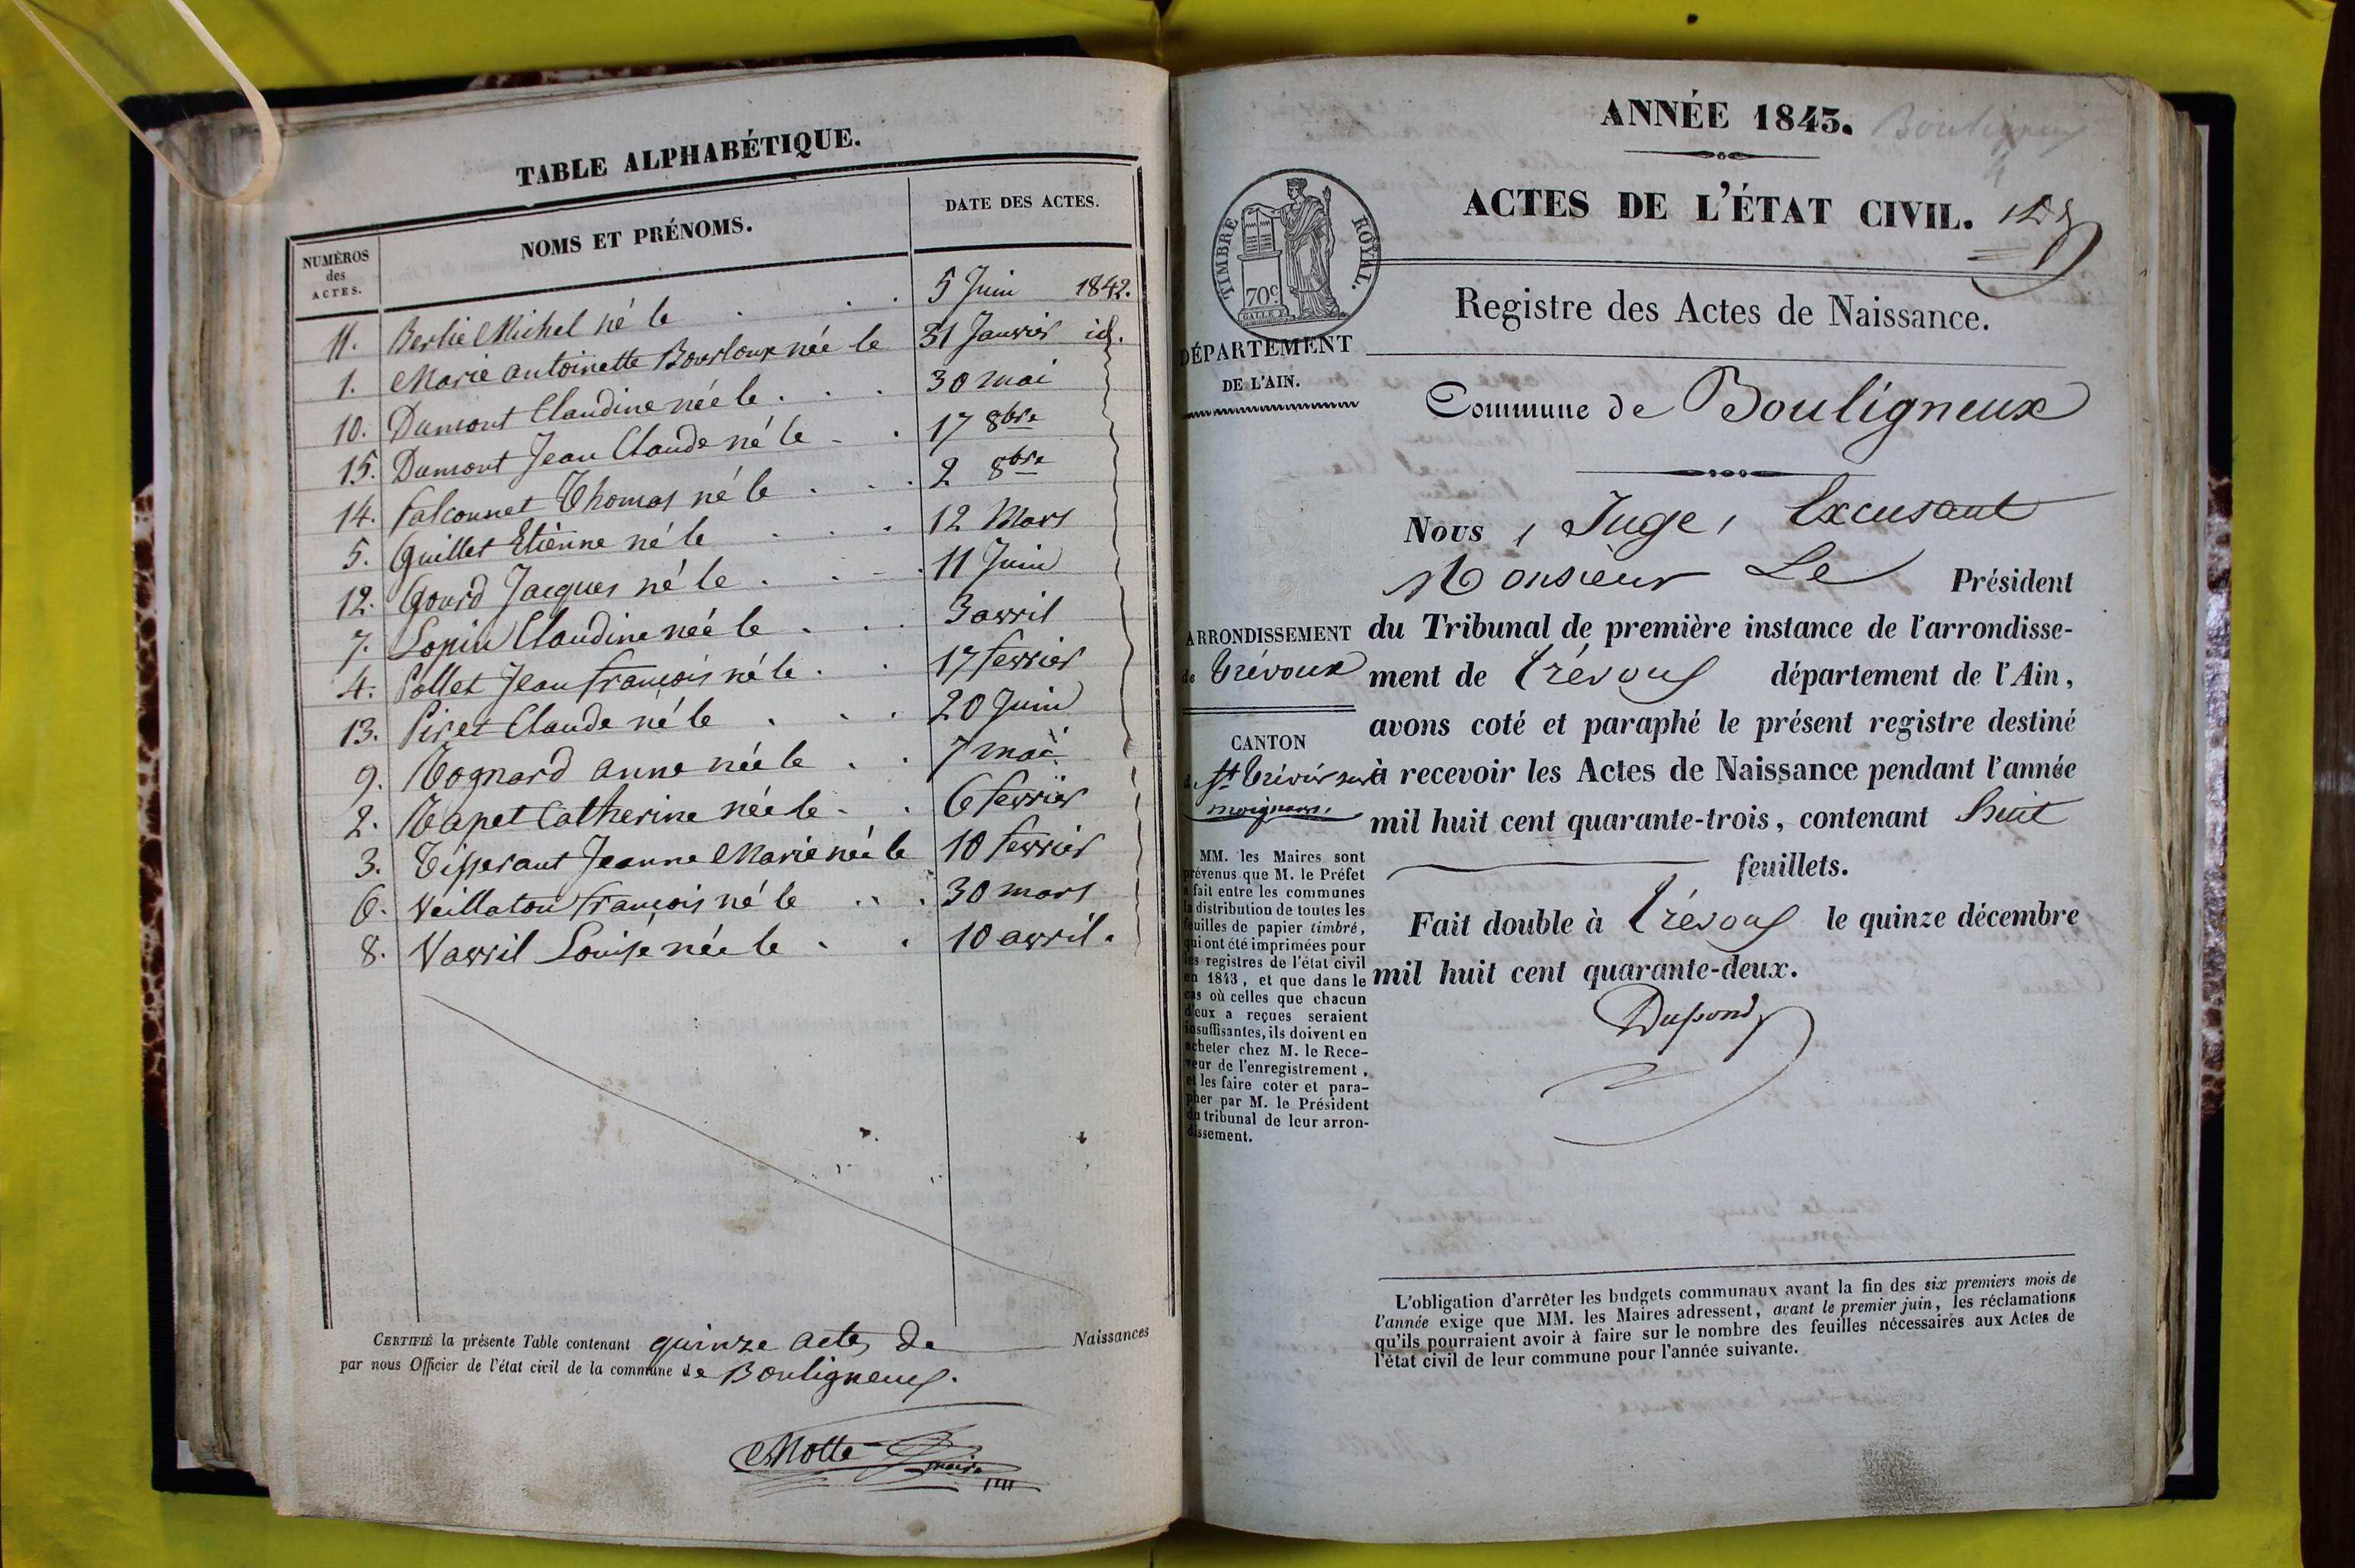 TABLE ALPHABÉTIQUE.
NUMÉROS
des
ACTES.
NOMS ET PRÉNOMS.
DATE DES ACTES.
11. Berlie Michel né le . . . 5 Juin 1842.
1. Marie antoinette Bourloux née le 31 Janvier id.
10. Dumont Claudine née le . . . 30 mai
15. Dumont Jean Claude né le . . 17 8bre
14. falconnet Thomas né le . . . 2 8bre
5. Guillet Etienne né le . . . 12 Mars
12. Gourd Jacques né le . . . 11 Juin
7. Lopin Claudine née le . . . 3 avril
4. Pollet Jean françois né le . . 17 fevrier
13. Piret Claude né le . . . 20 Juin
9. Tognard anne née le . . 7 mai
2. Tapet Catherine née le . . 6 fevrier
3. Tisserant Jeanne Marie née le 10 fevrier
6. Veillaton françois né le . . . 30 mars
8. Vavril Louise née le . . 10 avril.
CERTIFIÉ la présente Table contenant quinze actes de Naissances
par nous Officier de l'état civil de la commune de Bouligneux.
Motte maire
ANNÉE 1843. Bouligneux
ACTES DE L'ÉTAT CIVIL.
TIMBRE ROYAL.
70c
Registre des Actes de Naissance.
DÉPARTEMENT
DE L'AIN.
Commune de Bouligneux
Nous, Juge, Excusant
Monsieur Le Président
du Tribunal de première instance de l'arrondisse-
ment de Trévoux département de l'Ain,
avons coté et paraphé le présent registre destiné
à recevoir les Actes de Naissance pendant l'année
mil huit cent quarante-trois, contenant huit
feuillets.
Fait double à Trévoux le quinze décembre
mil huit cent quarante-deux.
Dupond
ARRONDISSEMENT
de Trévoux
CANTON
de St Trivier sur
moignans.
MM. les Maires sont
prévenus que M. le Préfet
a fait entre les communes
la distribution de toutes les
feuilles de papier timbré,
qui ont été imprimées pour
les registres de l'état civil
en 1843, et que dans le
cas où celles que chacun
d'eux a reçues seraient
insuffisantes, ils doivent en
acheter chez M. le Rece-
veur de l'enregistrement,
et les faire coter et para-
pher par M. le Président
du tribunal de leur arron-
dissement.
L'obligation d'arrêter les budgets communaux avant la fin des six premiers mois de
l'année exige que MM. les Maires adressent, avant le premier juin, les réclamations
qu'ils pourraient avoir à faire sur le nombre des feuilles nécessaires aux Actes de
l'état civil de leur commune pour l'année suivante.